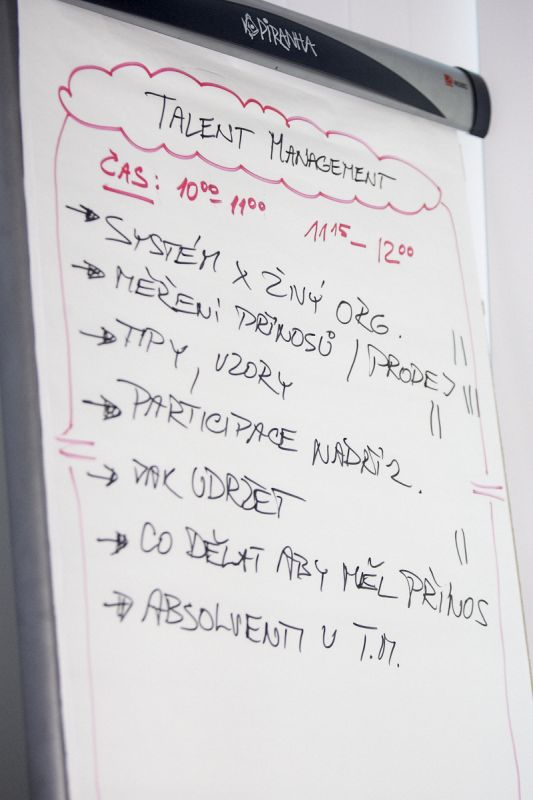 PIRANHA
TALENT MANAGEMENT
ČAS: 10⁰⁰-11⁰⁰ 11¹⁵-12⁰⁰
→ SYSTÉM X ŽIVÝ ORG. ||
→ MĚŘENÍ PŘÍNOSŮ / PRODEJ |||
→ TIPY, VZORY ||
→ PARTICIPACE NADŘÍZ.
→ JAK UDRŽET
→ CO DĚLAT ABY MĚL PŘÍNOS ||
→ ABSOLVENTI V T.M.